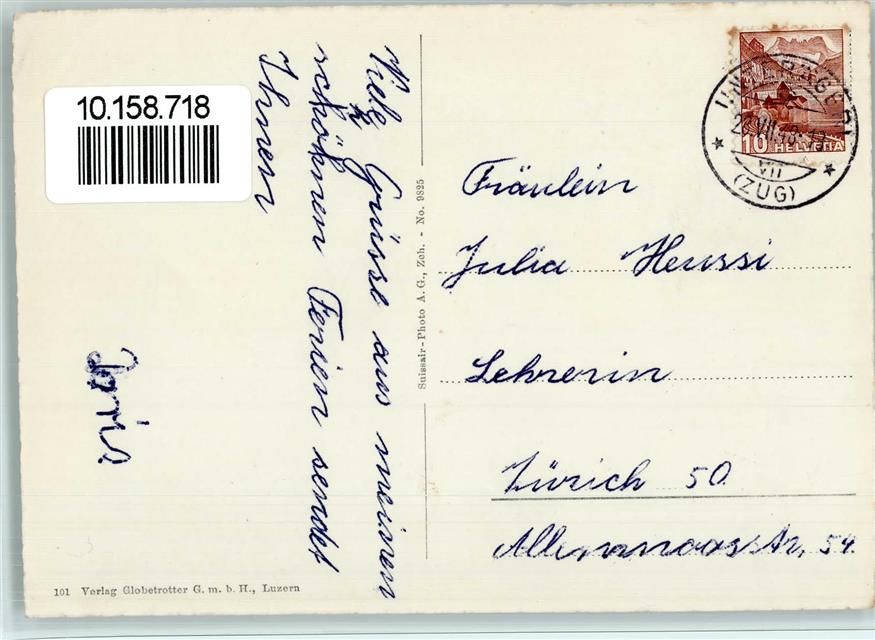 10.158.718
Viele Grüsse aus meinen
schönen Ferien sendet
Ihnen
Doris.
Suissair-Photo A. G., Zch. - No. 9825
10 HELVETIA
VII
(ZUG)
Fräulein
Julia Heussi
Lehrerin
Zürich 50
Allenmoosstr, 54.
101 Verlag Globetrotter G. m. b. H., Luzern